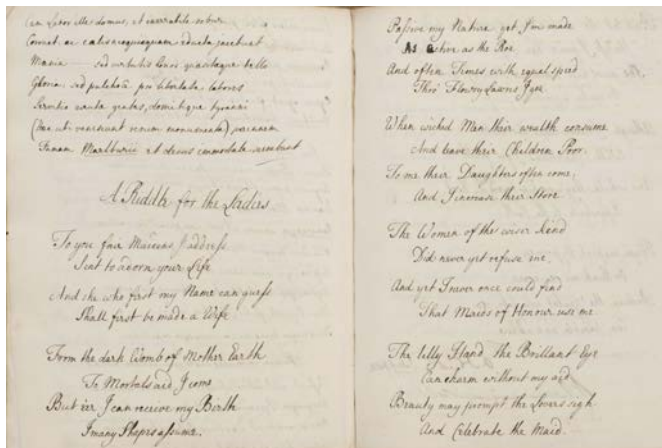 Labor ille domus, et
Mavia sed virtutis bello
Gloria sed pulchra pro libertate labores
domitique tyranni
(Hæc uti monumenta) perennem
Famam et decus immortale
A Riddle for the Ladies
To you fair Maidens I address
Sent to adorn your Life
And she who first my Name can guess
Shall first be made a Wife
From the dark Womb of Mother Earth
To Mortals aid I come
But e'er I can receive my Birth
I many Shapes assume.
Passive my Nature yet I'm made
As Active as the Roe
And often Times with equal speed
Thro' Flowry Lawns I go
When wicked Men their wealth consume
And leave their Children Poor
To me their Daughters often come
And I increase their Store
The Women of the wiser kind
Did never yet refuse me
And yet I never once could find
That Maids of Honour use me
The lilly Hand the Brillant Eye
Can charm without my aid
Beauty may prompt the Lovers sigh
And Celebrate the Maid.